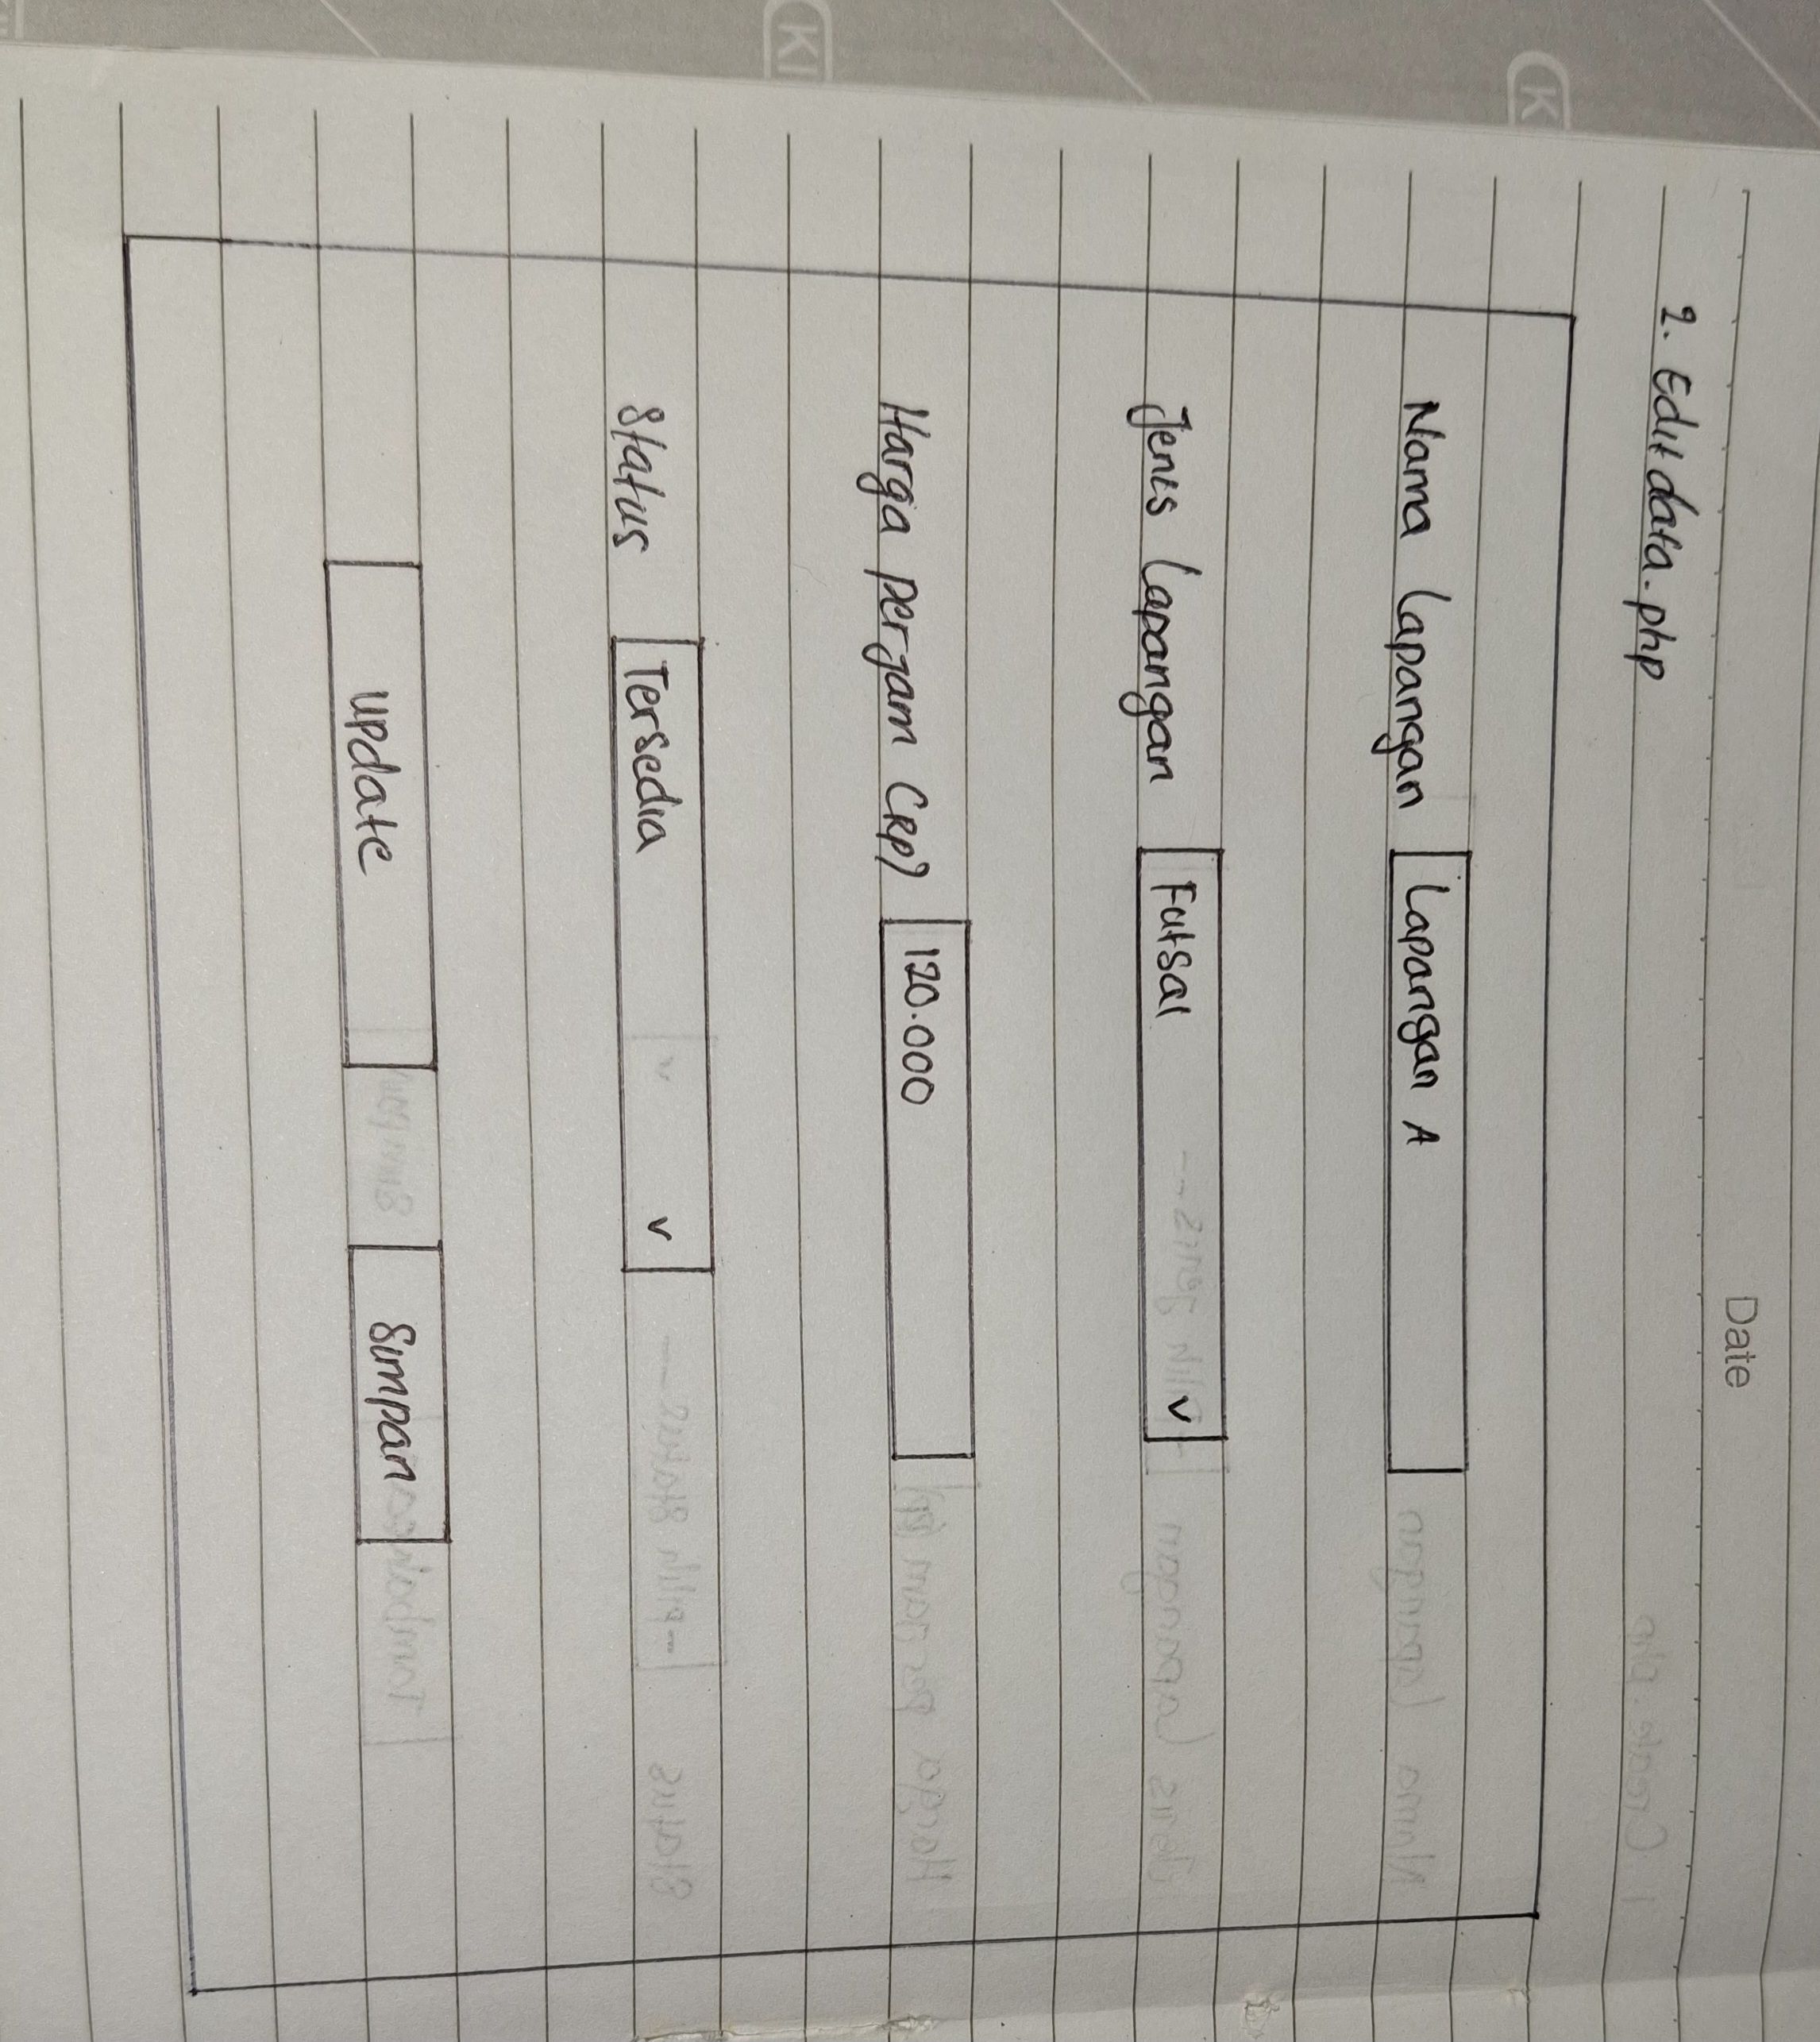 Date
2. Edit data.php
Nama Lapangan Lapangan A
Jenis Lapangan Futsal v
Harga per jam (Rp) 120.000
Status Tersedia v
update Simpan